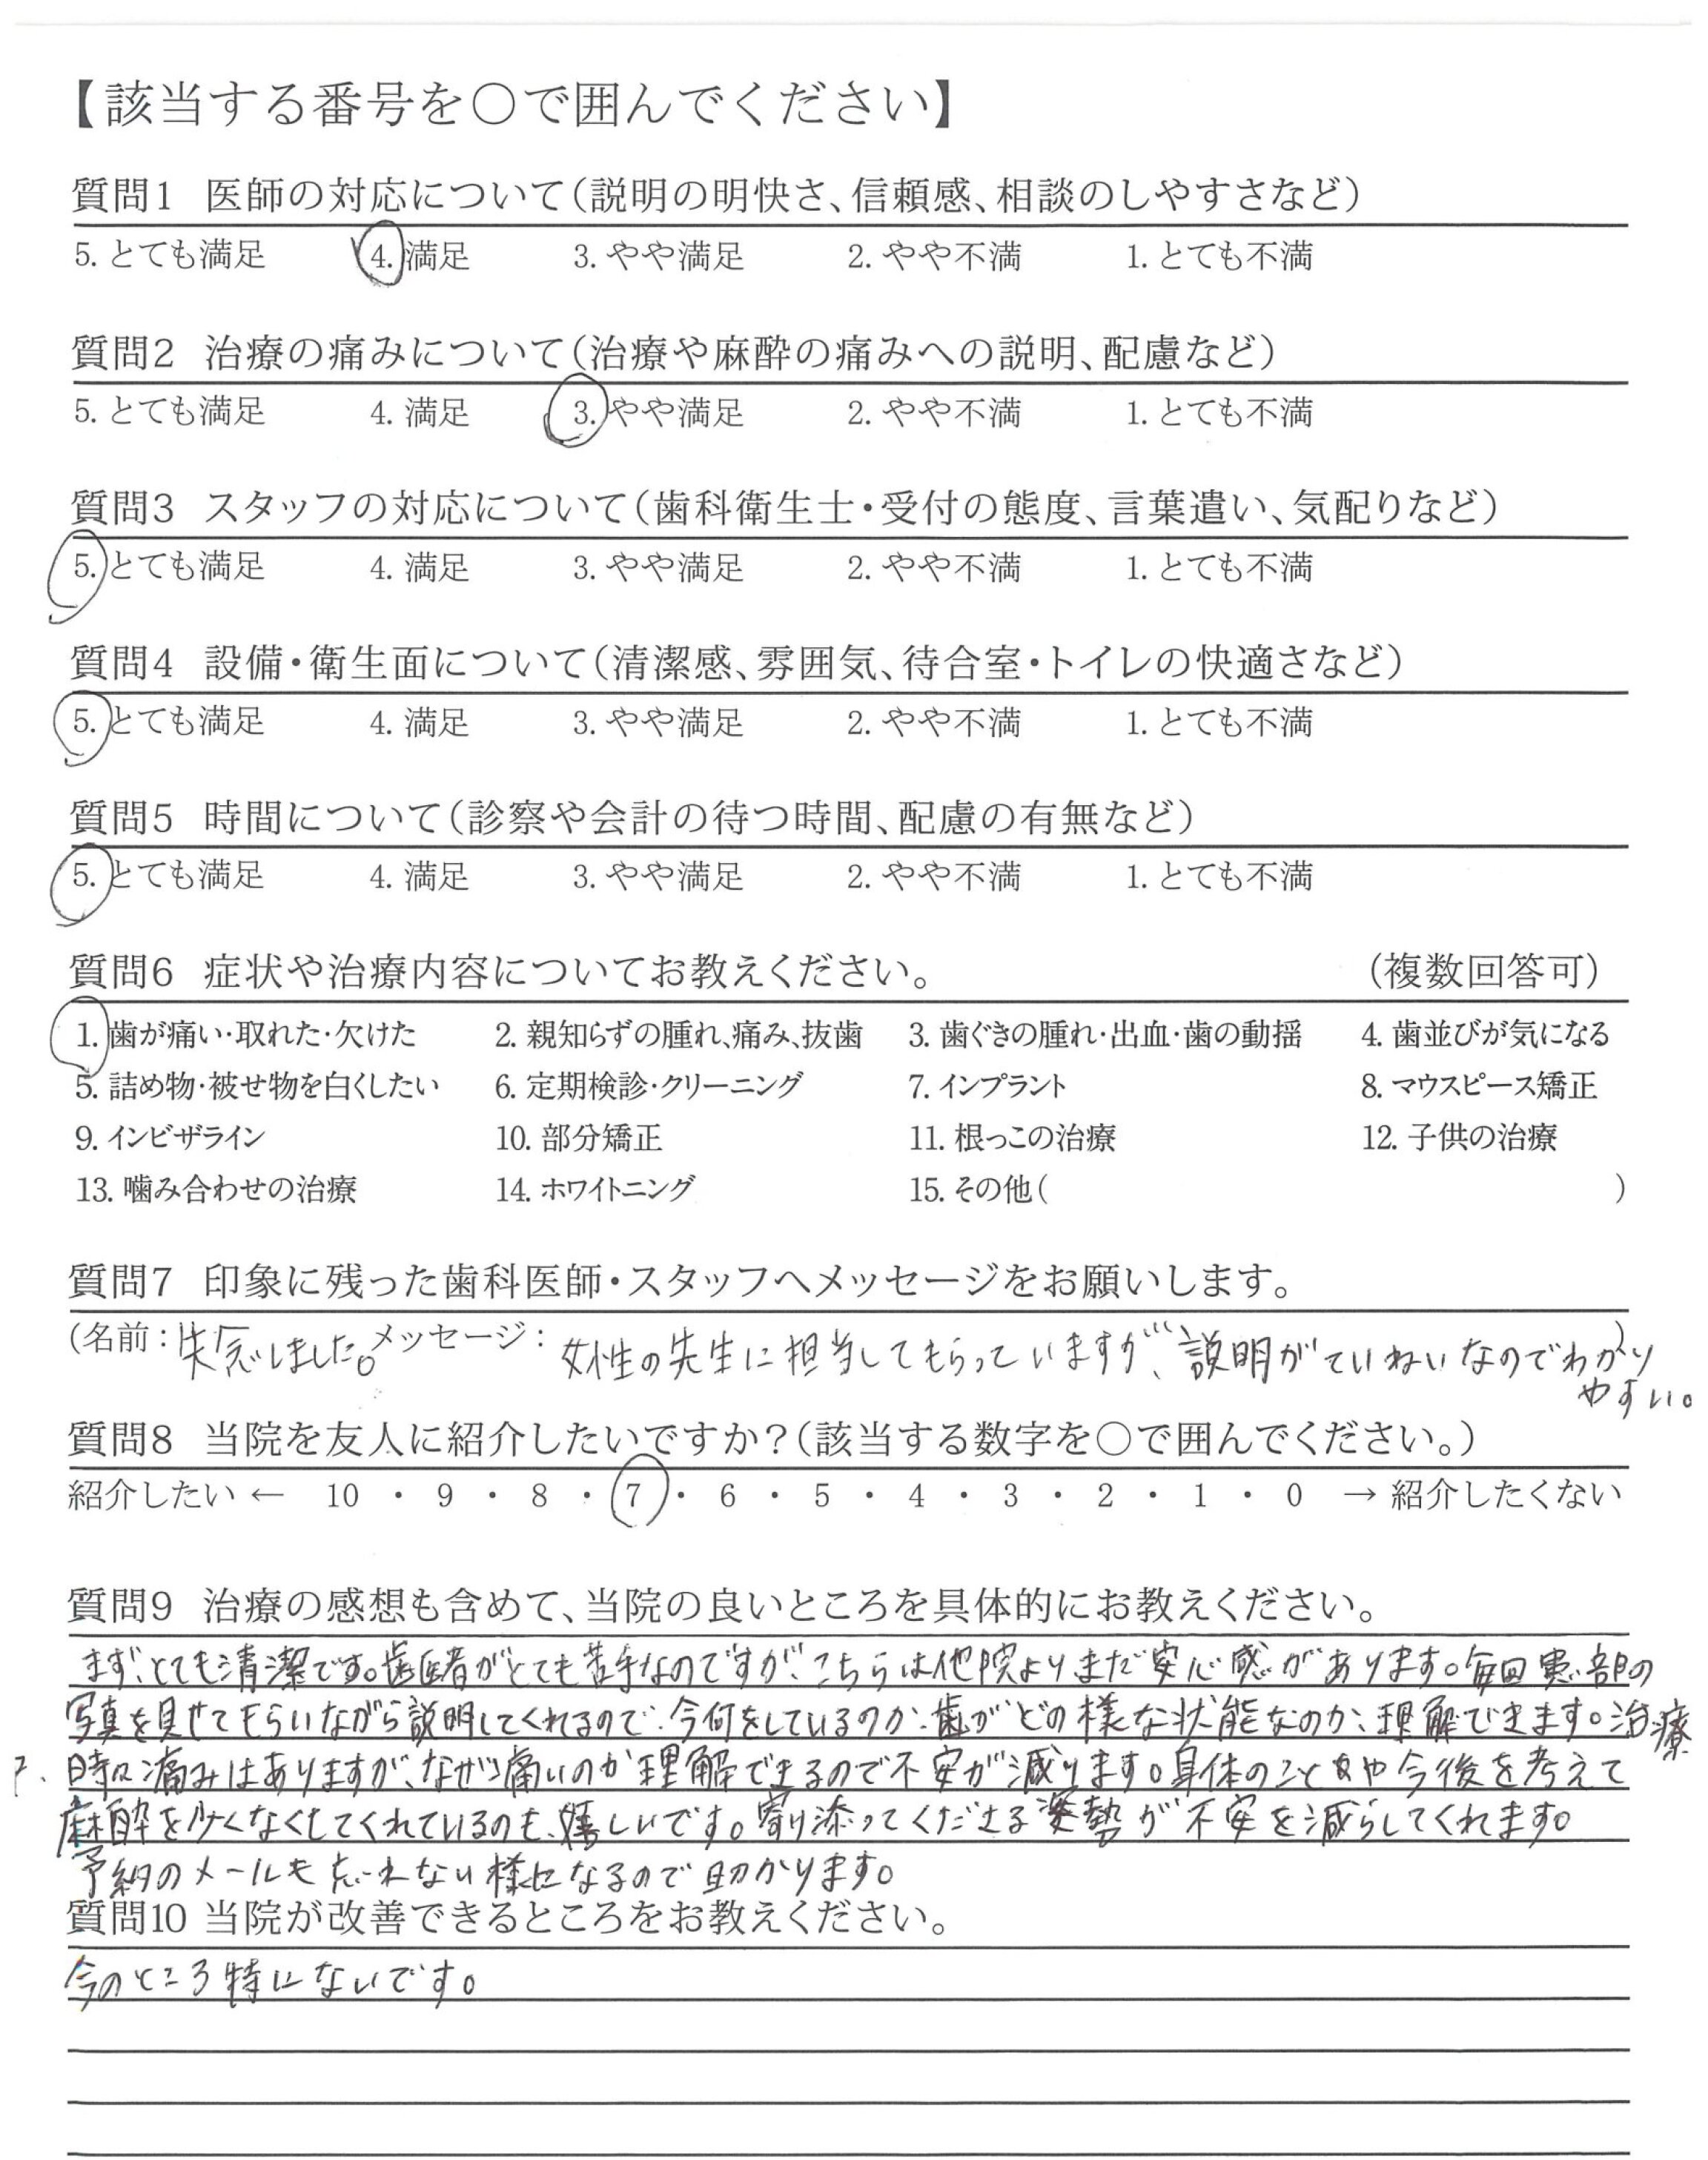 【該当する番号を○で囲んでください】
質問1 医師の対応について(説明の明快さ、信頼感、相談のしやすさなど)
5. とても満足 4. 満足 3. やや満足 2. やや不満 1. とても不満
質問2 治療の痛みについて(治療や麻酔の痛みへの説明、配慮など)
5. とても満足 4. 満足 3. やや満足 2. やや不満 1. とても不満
質問3 スタッフの対応について(歯科衛生士・受付の態度、言葉遣い、気配りなど)
5. とても満足 4. 満足 3. やや満足 2. やや不満 1. とても不満
質問4 設備・衛生面について(清潔感、雰囲気、待合室・トイレの快適さなど)
5. とても満足 4. 満足 3. やや満足 2. やや不満 1. とても不満
質問5 時間について(診察や会計の待つ時間、配慮の有無など)
5. とても満足 4. 満足 3. やや満足 2. やや不満 1. とても不満
質問6 症状や治療内容についてお教えください。 (複数回答可)
1. 歯が痛い・取れた・欠けた 2. 親知らずの腫れ、痛み、抜歯 3. 歯ぐきの腫れ・出血・歯の動揺 4. 歯並びが気になる
5. 詰め物・被せ物を白くしたい 6. 定期検診・クリーニング 7. インプラント 8. マウスピース矯正
9. インビザライン 10. 部分矯正 11. 根っこの治療 12. 子供の治療
13. 噛み合わせの治療 14. ホワイトニング 15. その他( )
質問7 印象に残った歯科医師・スタッフへメッセージをお願いします。
(名前:失念しました。メッセージ: 女性の先生に担当してもらっていますが、説明がていねいなのでわかり)
やすい。
質問8 当院を友人に紹介したいですか?(該当する数字を○で囲んでください。)
紹介したい ← 10 ・ 9 ・ 8 ・ 7 ・ 6 ・ 5 ・ 4 ・ 3 ・ 2 ・ 1 ・ 0 → 紹介したくない
質問9 治療の感想も含めて、当院の良いところを具体的にお教えください。
まず、とても清潔です。歯医者がとても苦手なのですが、こちらは他院よりまだ安心感があります。毎回患部の
写真を見せてもらいながら説明してくれるので、今何をしているのか、歯がどの様な状態なのか、理解できます。治療
時に痛みはありますが、なぜ痛いのか理解できるので不安が減ります。身体のことや今後を考えて
麻酔を少くなくしてくれているのも、嬉しいです。寄り添ってくださる姿勢が不安を減らしてくれます。
予約のメールも忘れない様になるので助かります。
質問10 当院が改善できるところをお教えください。
今のところ特にないです。